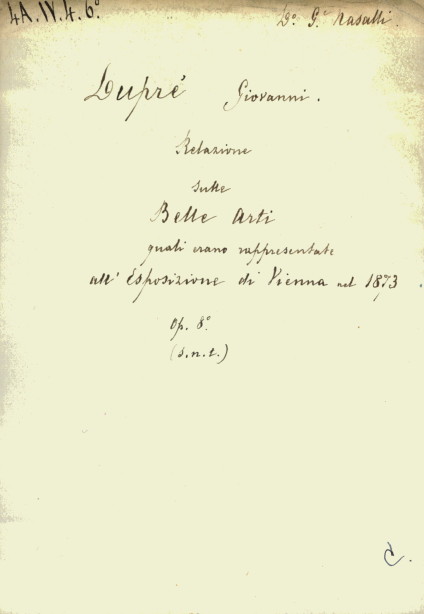 4A.IV.4.6º
Dº. G.e Rasulli.
Dupré Giovanni.
Relazione
sulle
Belle Arti
quali erano rappresentate
all' Esposizione di Vienna nel 1873.
op. 8º
(s.n.t.)
C.